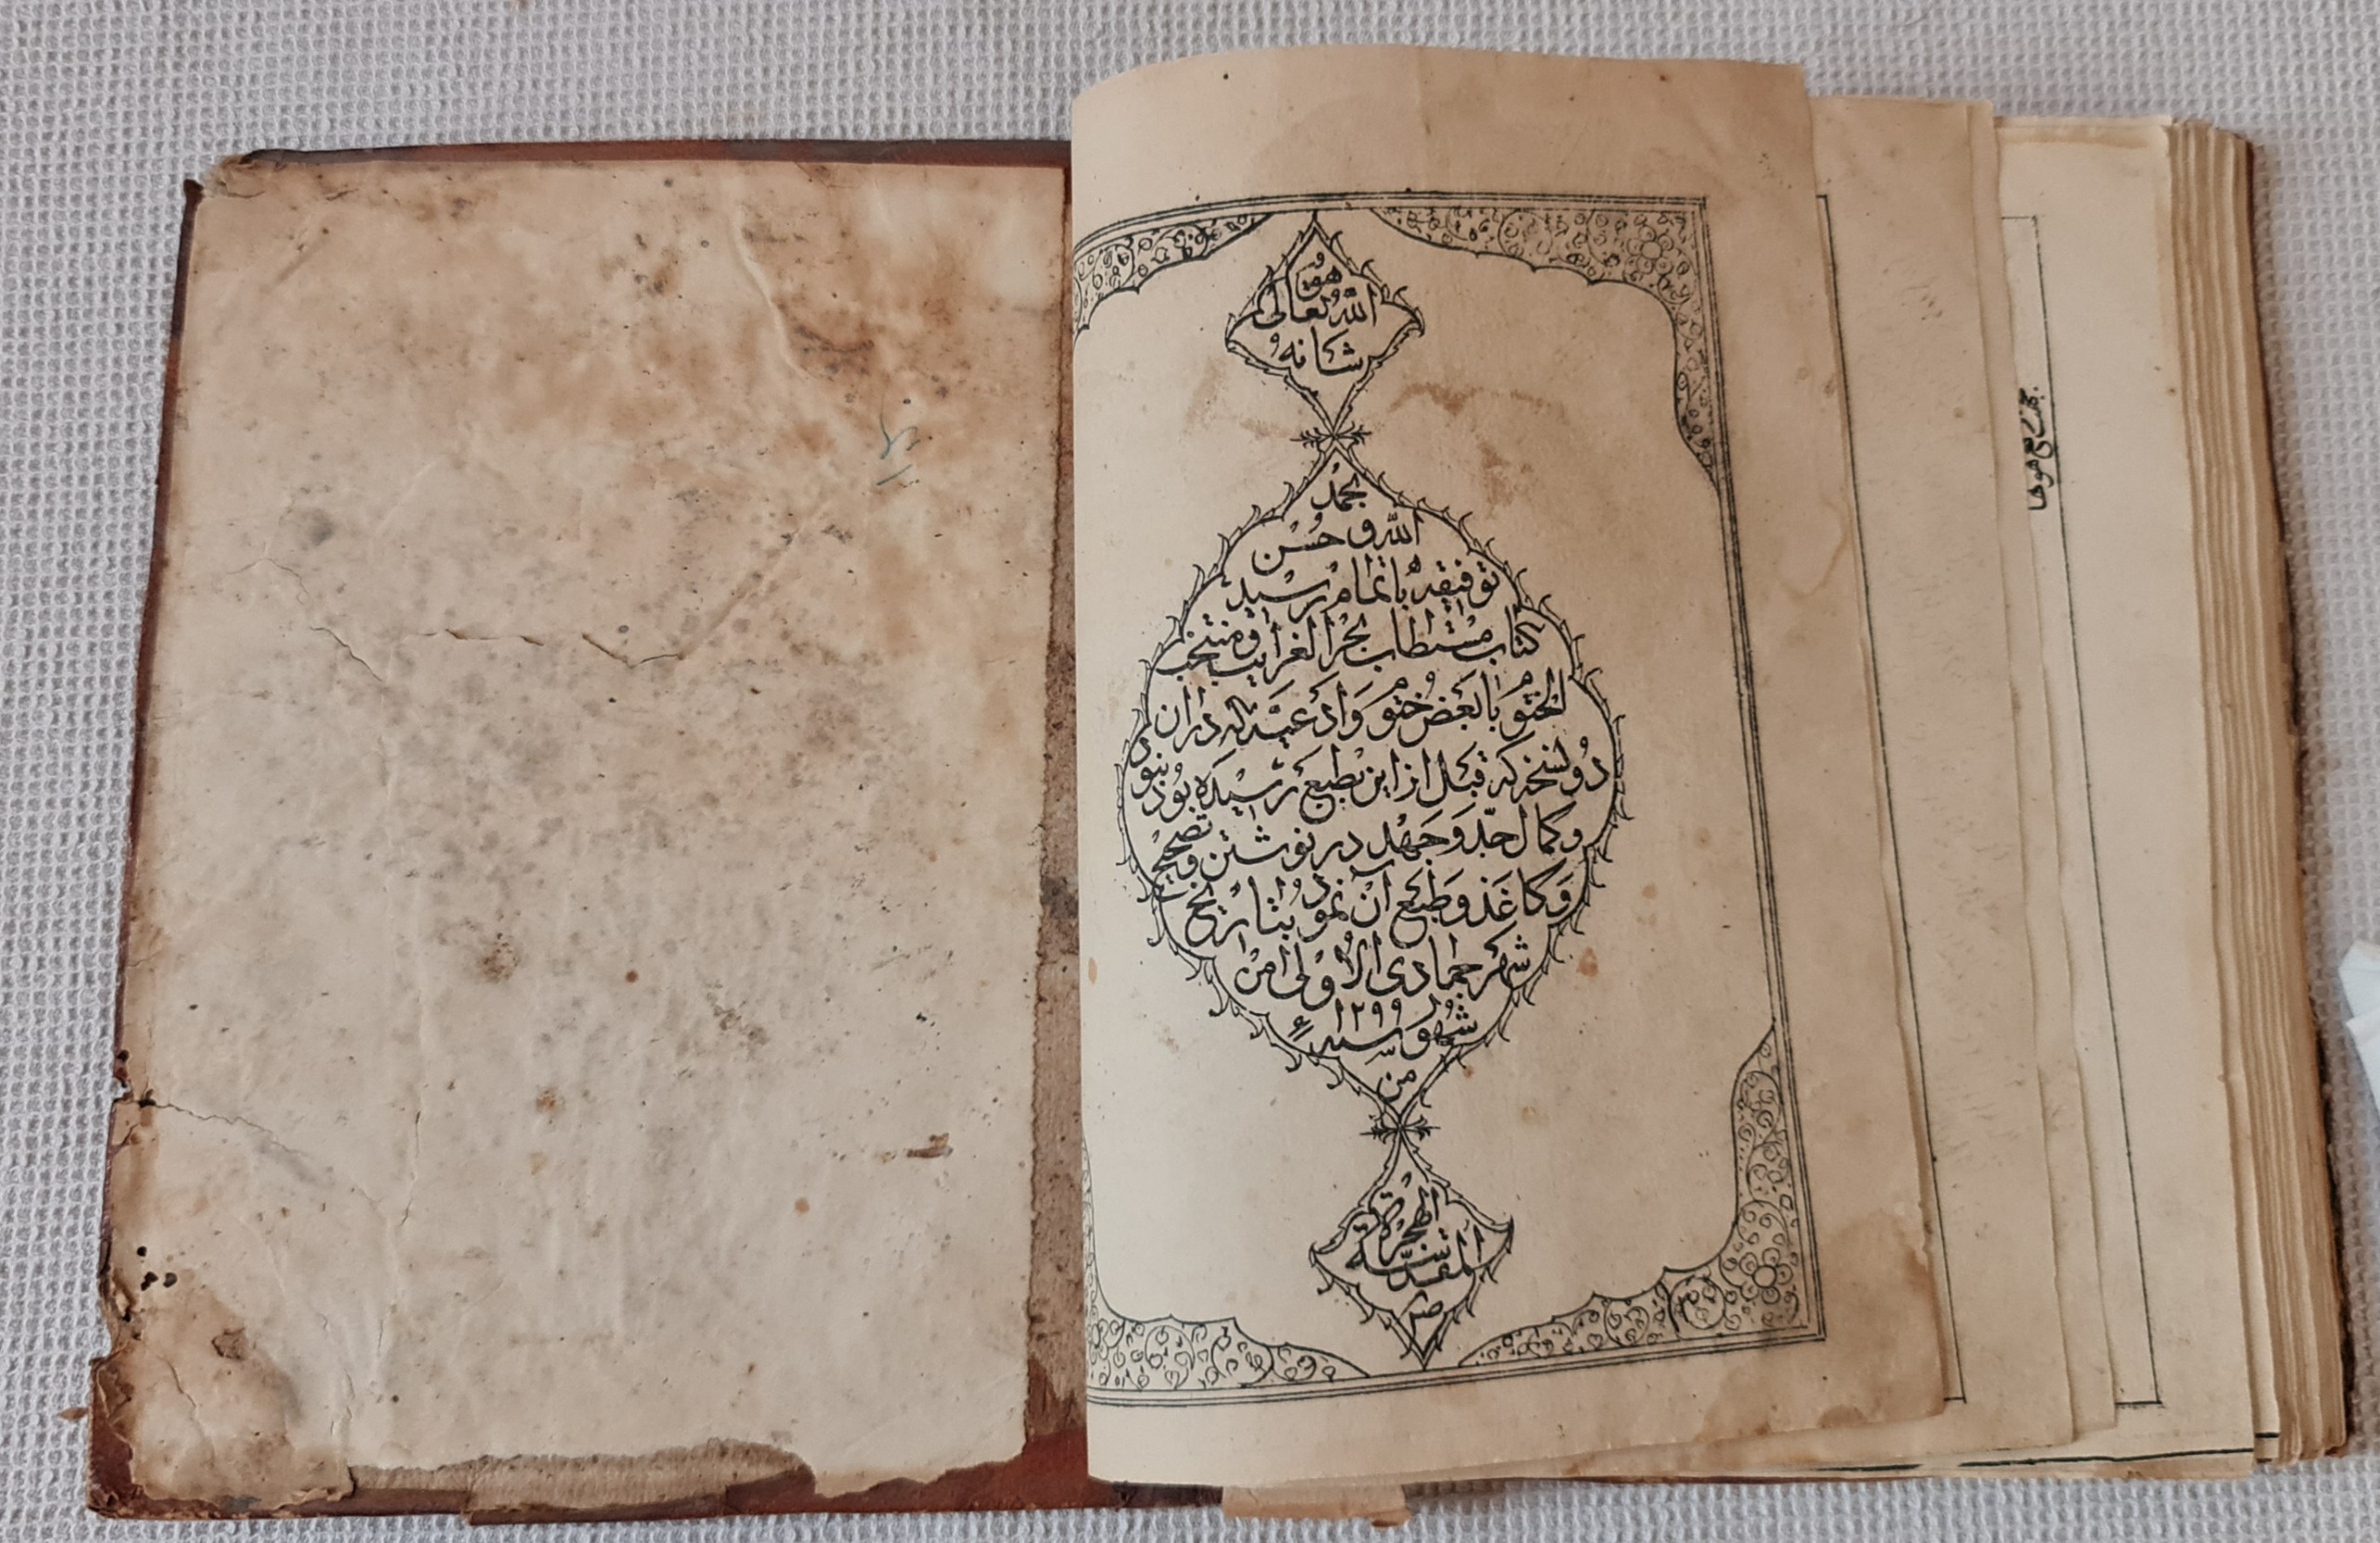 هو
الله تعالی
شانه
بحمد
الله و حسن
توفیقه باتمام رسید
کتاب مستطاب بحر الغرایب و منتخب
الختوم با بعض ختوم و ادعیه که در آن
دو نسخه که قبل از این بطبع رسیده بود نبود
و کمال جدّ و جهد در نوشتن و تصحیح
و کاغذ و طبع آن نمود بتاریخ
شهر جمادی الاولی من
شهور سنهٔ ۱۲۹۹
من
الهجرة
المقدسة